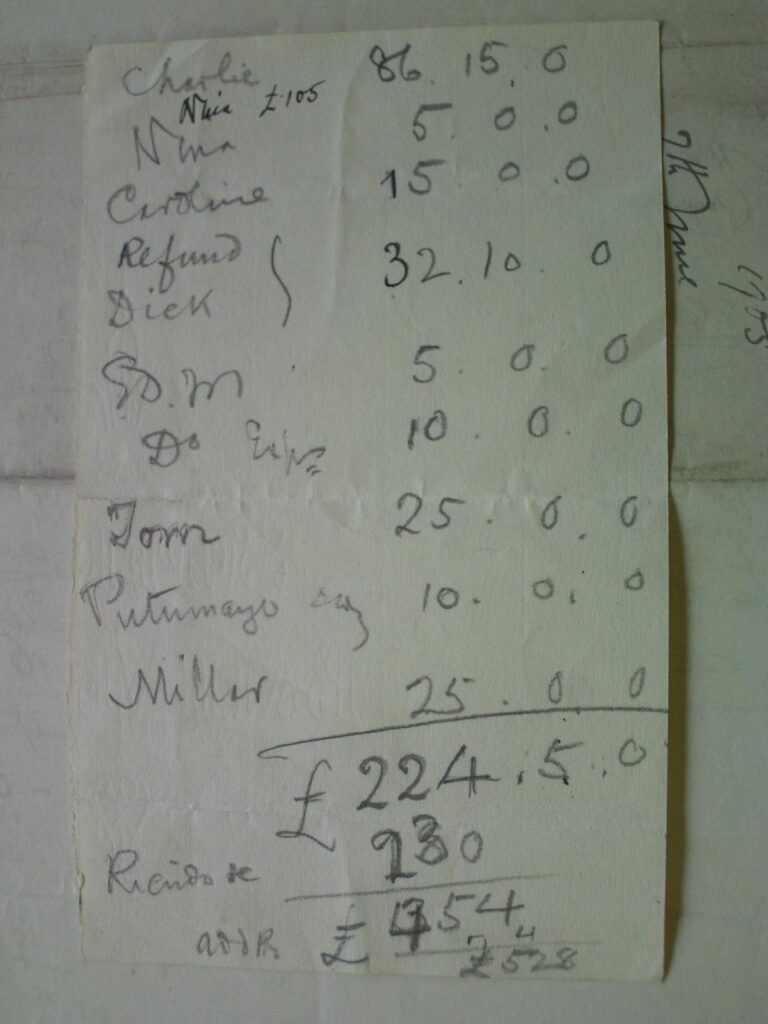 Charlie 86. 15. 0
Nina £105
Nina 5. 0. 0
Caroline 15. 0. 0
Refund } 32. 10. 0
Dick
5. 0. 0
Do 10. 0. 0
Tom 25. 0. 0
Putumayo 10. 0. 0
Millar 25. 0. 0
£224. 5. 0
230
£454
£528
7th June